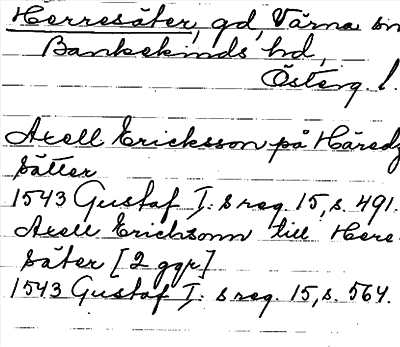 Herresäter, gd, Värna sn
Bankekinds hd,
Österg. l.
Axell Ericksson på Häredz
sätter
1543 Gustaf I:s reg. 15, s. 491.
Axell Erichsonn till Here-
säter [2 ggr]
1543 Gustaf I:s reg. 15, s. 564.